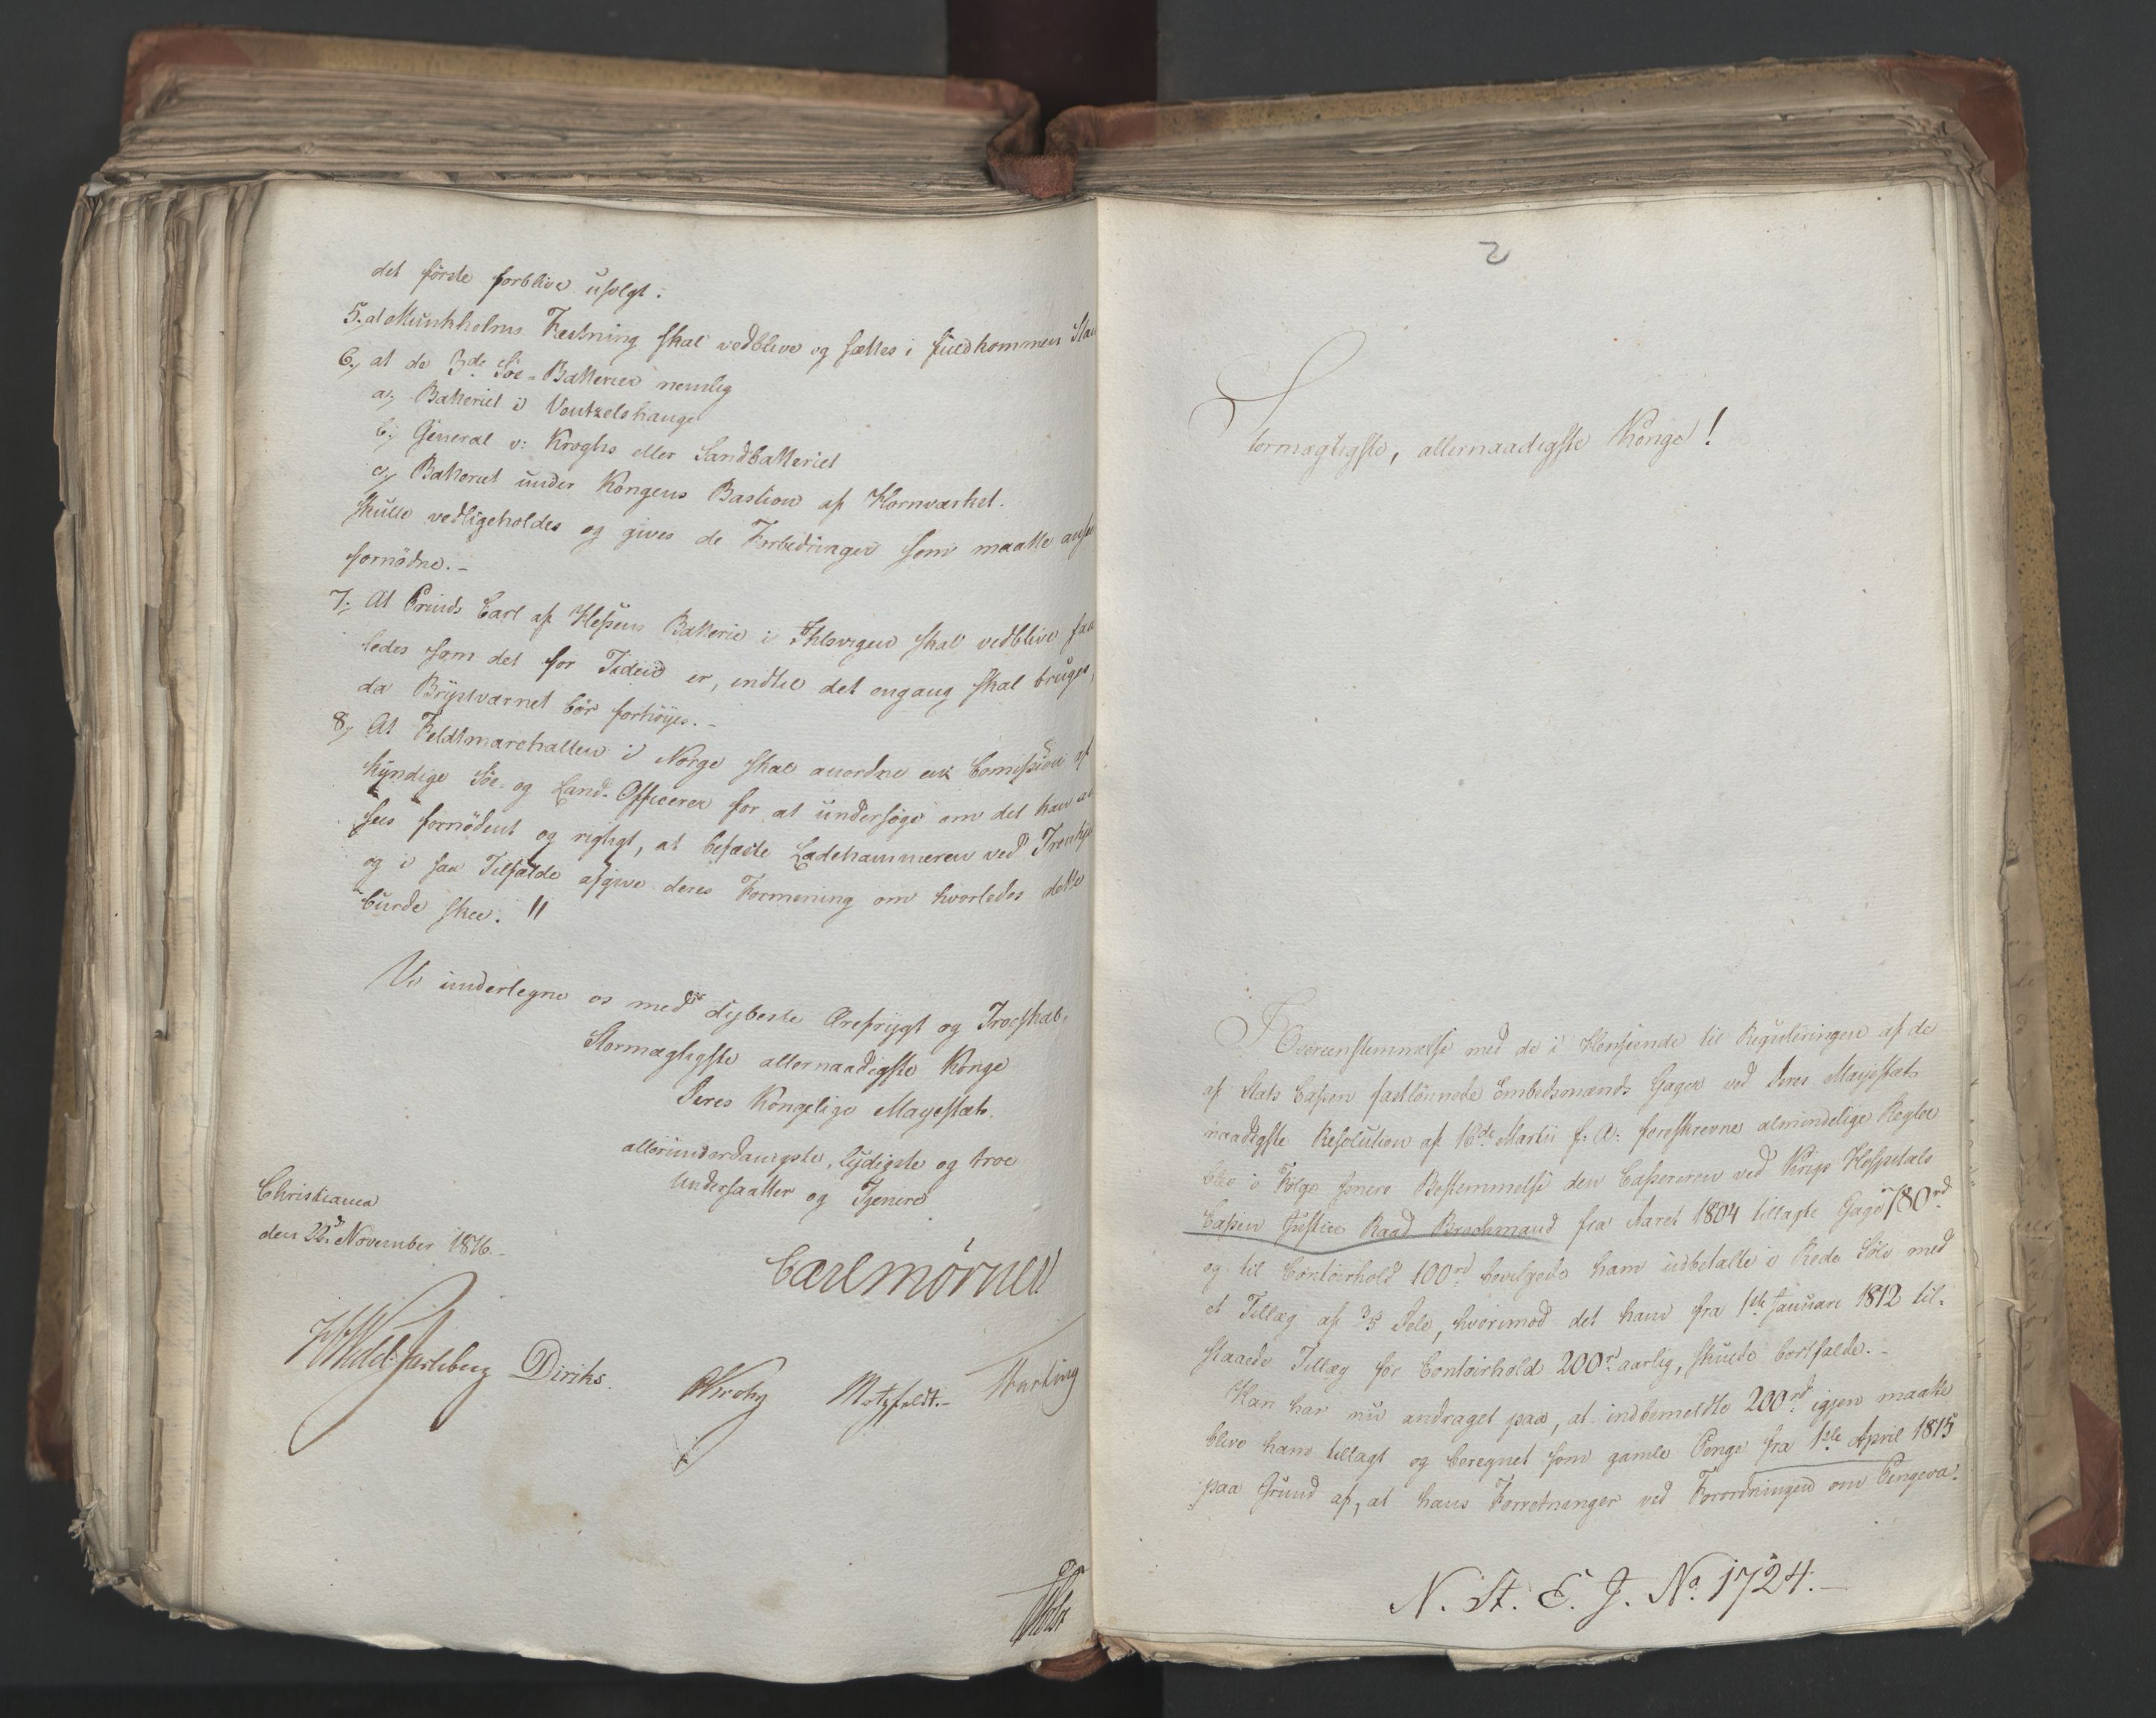 det første forblive usolgt.
5. at Munkholms Fæstning skal vedblive og sættes i fuldkommen Stan
6, at de 3de Søe-Batterier nemlig
a, Batteriet i Ventzelshauge
b, General v: Kroghs eller Sandbatteriet
c, Batteriet under Kongens Bastion af Hornværket.
skulle vedligeholdes og gives de Forbedringer som maatte anse
fornødne. -
7, At Prinds Carl af Hessens Batterie i Ihlsvigen skal vedblive saa
ledes som det for Tiden er, indtil det engang skal bruges,
da Brystværnet bør forhøyes. -
8, At Feldtmarchallen i Norge skal anordne en Comission af
kyndige Søe- og Land-Officerer for at undersøge om det kan an
sees fornødent og rigtigt, at befæste Ladehammeren ved Tronhje
og i saa Tilfælde afgive deres Formening om hvorledes dette
burde skee. "
Vi undertegne os med dybeste Ærefrygt og Troeskab,
Stormægtigste allernaadigste Konge
Deres Kongelige Mayestæts.
allerunderdanigste, lydigste og troe
Undersaatter og Tjenere
Christiania
den 22de November 1816. -
Carl Mörner
Wedel Jarlsberg Diriks. Krohg Motzfeldt. -
Holst
2
Stormægtigste, allernaadigste Konge!
I Overeenstemmelse med de i Henseende til Reguleringen af de
af Stats Cassen fastlønnede Embedsmænds Gager ved Deres Mayestæts
naadigste Resolution af 16de Martii f: A: foreskrevne almindelige Regler
blev i Følge senere Bestemmelse den Cassereren ved Krigs Hospitals
Cassen Justice Raad Brochmand fra Aaret 1804 tillagte Gage 780rd
og til Contoirhold 100rd bevilgede ham udbetalte i Rede Sølv med
et Tillæg af 3/5 Dele, hvorimod det ham fra 1ste Januari 1812 til-
staaede Tillæg for Contoirhold 200rd aarlig, skulde bortfalde. -
Han har nu andraget paa, at indbemeldte 200rd igjen maatte
blive ham tillagt og beregnet som gamle Penge fra 1ste April 1815
paa Grund af, at hans Forretninger ved Forordningen om Pengeva-
N. St. E. J. No 1724. -